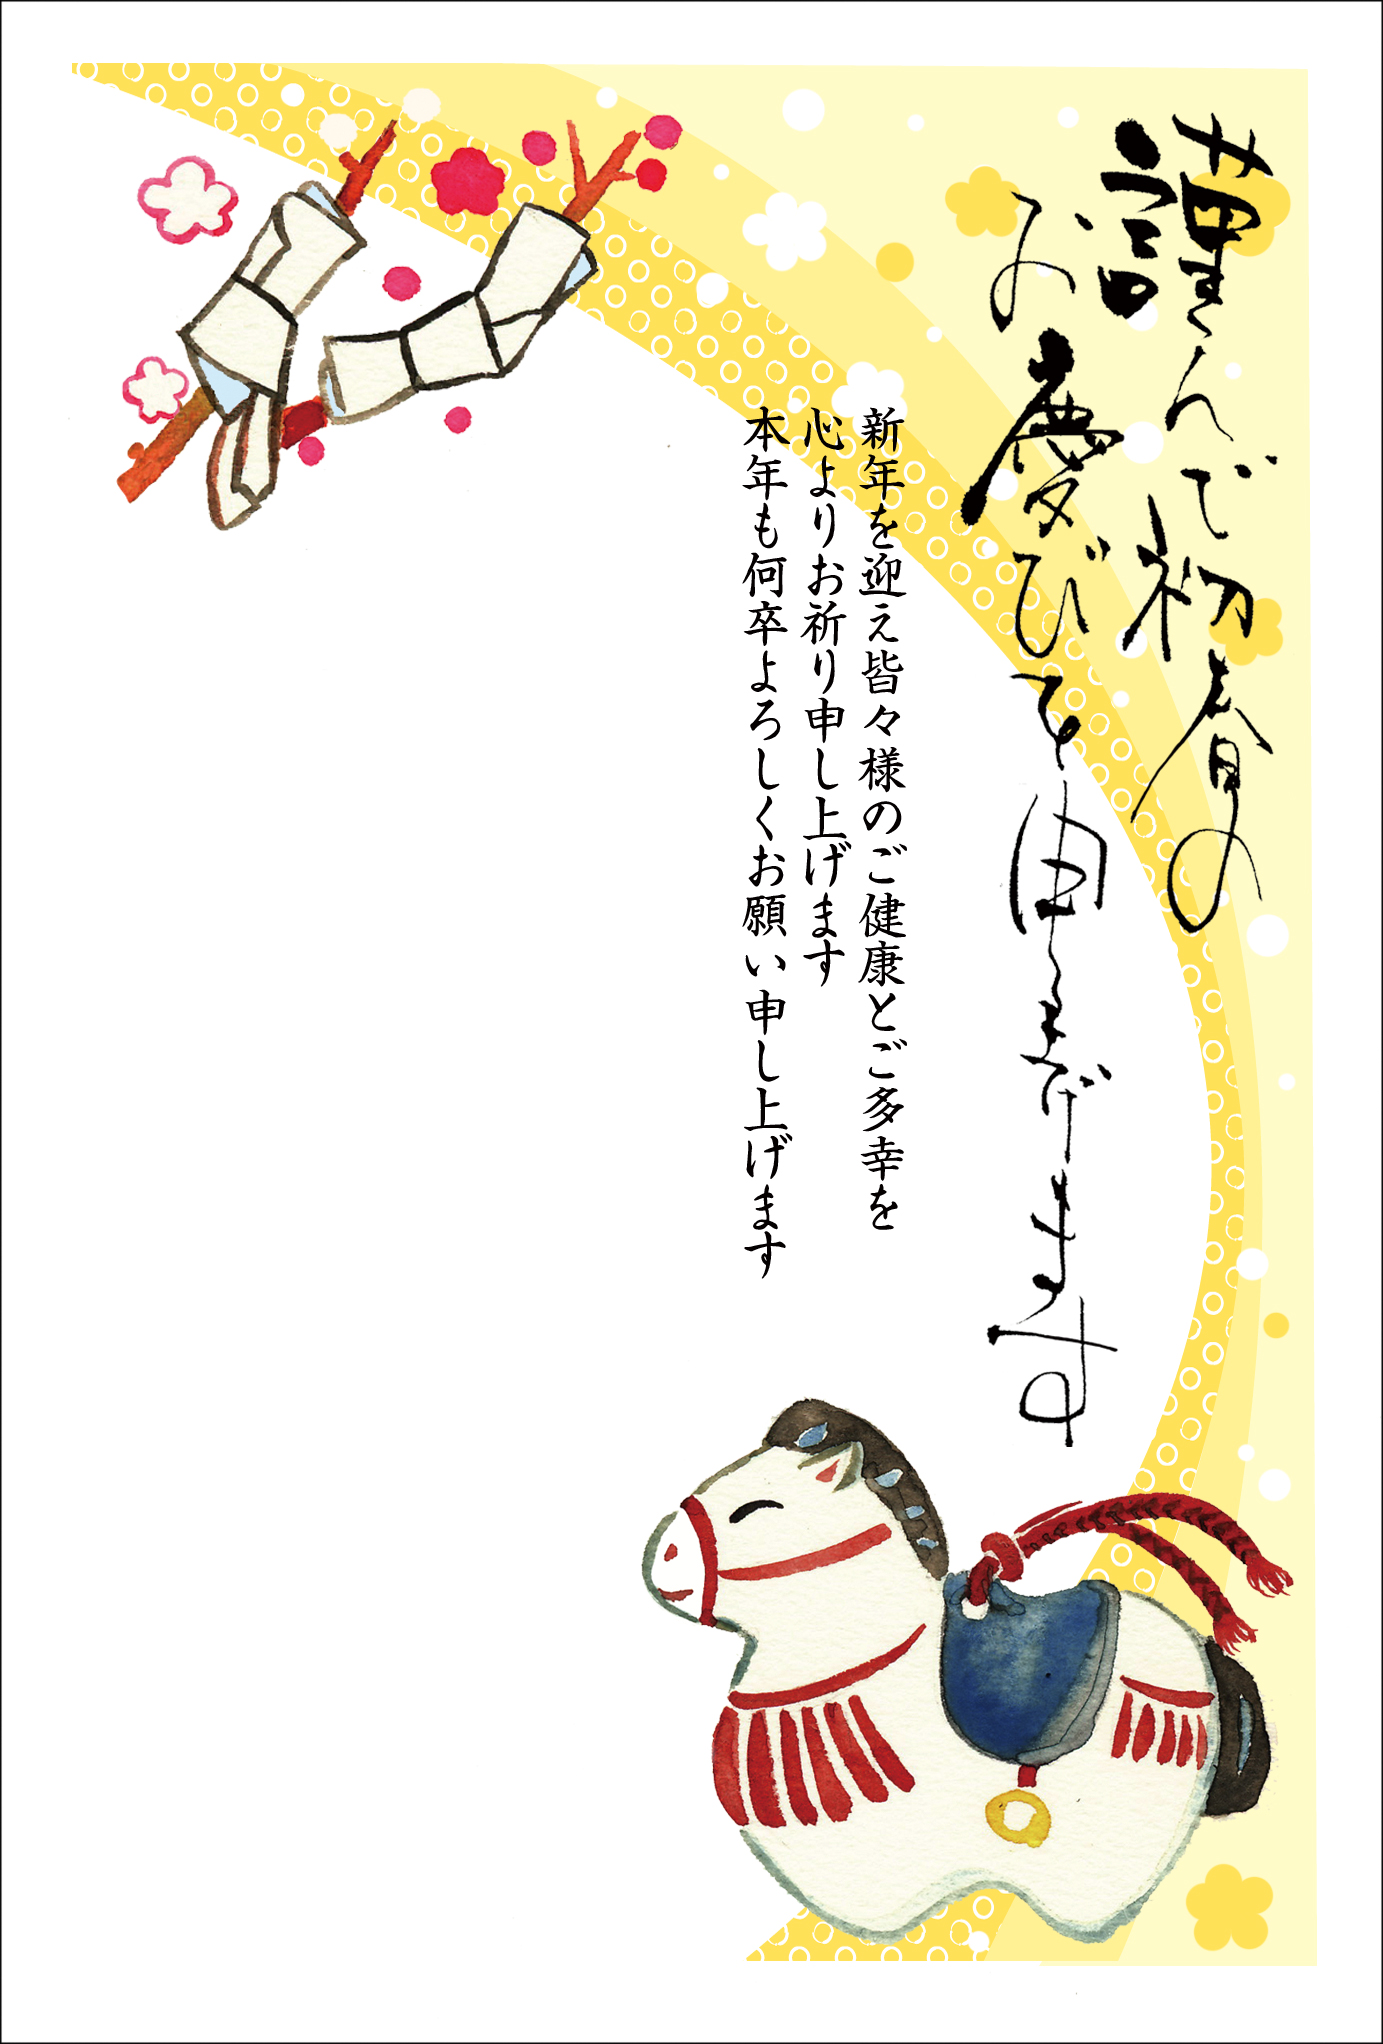 謹んで初春の
お慶びを申し上げます
新年を迎え皆々様のご健康とご多幸を
心よりお祈り申し上げます
本年も何卒よろしくお願い申し上げます